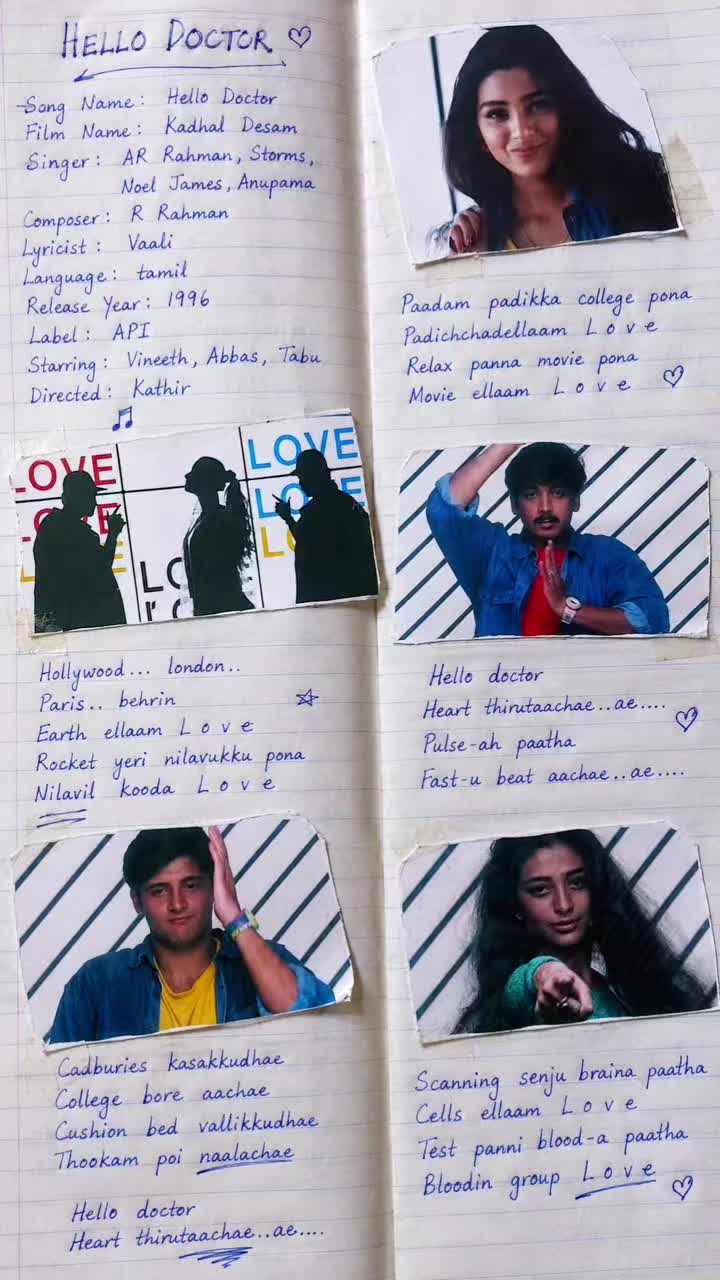 HELLO DOCTOR
Song Name: Hello Doctor
Film Name: Kadhal Desam
Singer: AR Rahman, Storms,
Noel James, Anupama
Composer: R Rahman
Lyricist: Vaali
Language: tamil
Release Year: 1996
Label: API
Starring: Vineeth, Abbas, Tabu
Directed: Kathir
LOVE LOVE
LOVE LOVE
Hollywood... london..
Paris.. behrin
Earth ellaam Love
Rocket yeri nilavukku pona
Nilavil kooda Love
Cadburies kasakkudhae
College bore aachae
Cushion bed vallikkudhae
Thookam poi naalachae
Hello doctor
Heart thirutaachae..ae....
Paadam padikka college pona
Padichchadellaam Love
Relax panna movie pona
Movie ellaam Love
Hello doctor
Heart thirutaachae..ae....
Pulse-ah paatha
Fast-u beat aachae..ae....
Scanning senju braina paatha
Cells ellaam Love
Test panni blood-a paatha
Bloodin group Love